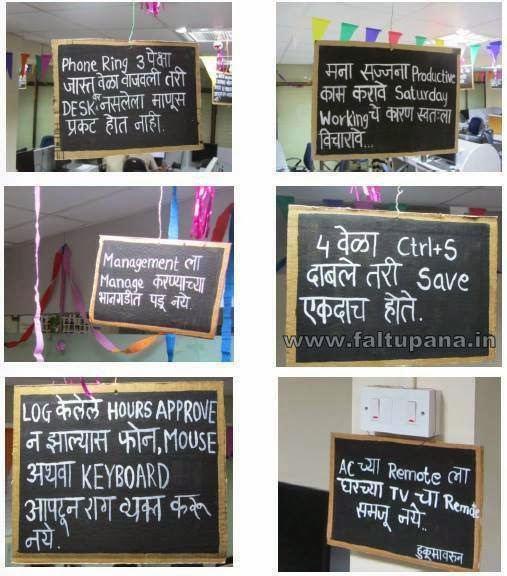 Phone Ring 3 पेक्षा
जास्त वेळा वाजवली तरी
DESK वर नसलेला माणूस
प्रकट होत नाही.
मना सज्जना Productive
काम करावे Saturday
Working चे कारण स्वतःला
विचारावे...
Management ला
Manage करण्याच्या
भानगडीत पडू नये.
4 वेळा Ctrl+S
दाबले तरी Save
एकदाच होते.
www.faltupana.in
LOG केलेले HOURS APPROVE
न झाल्यास फोन, MOUSE
अथवा KEYBOARD
आपटून राग व्यक्त करू
नये.
AC च्या Remote ला
घरच्या TV चा Remote
समजू नये..
हुकूमावरून